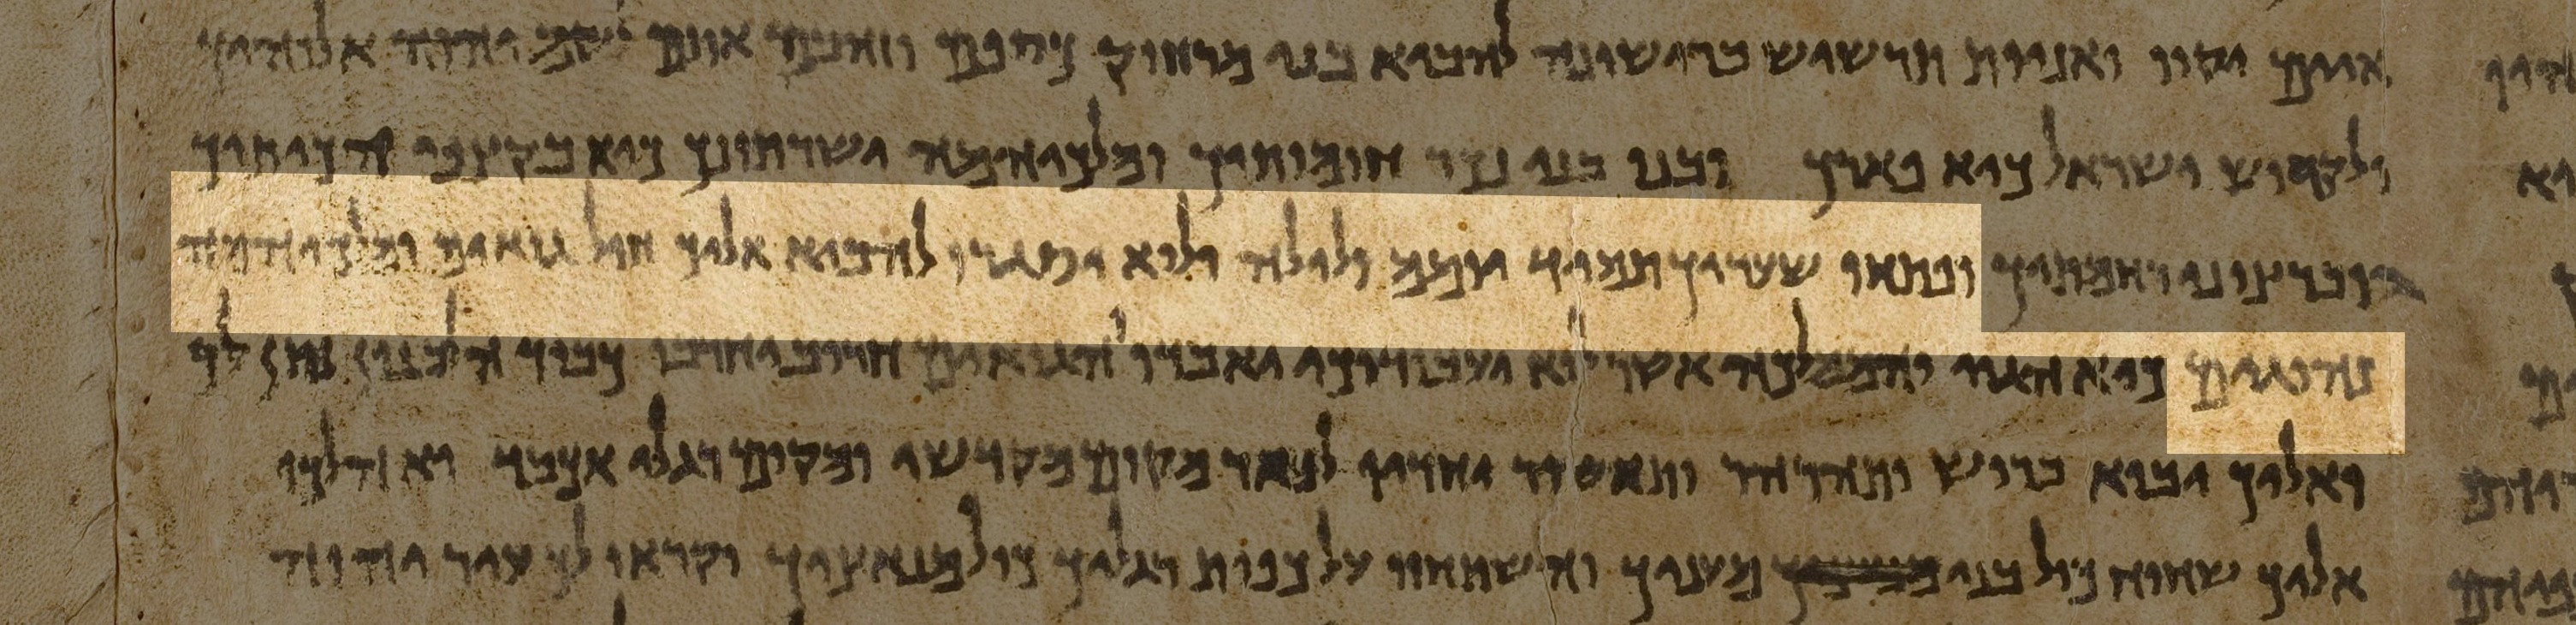 איים יקוו ואניות תרשיש כראישונה להביא בני מרחוק כספם וזהבם אותם לשם יהוה אלוהיך
ולקדוש ישראל כיא פארך ובנו בני נכר חומותיך ומלכיהמה ישרתונך כיא בקצפי הכיתיך
וברצוני רחמתיך ופתחו שעריך תמיד יומם ולילה ולוא יסגרו להביא אליך חיל גואים ומלכיהמה
נהוגים כיא הגוי והממלכה אשר לוא יעבודוך יואבדו והגואים חרוב יחרבו כבוד הלבנון נתן לך
ואליך יבוא ברוש ותהרהר ותאשור יחדיו לפאר מקום מקדשי ומקום רגלי אכבד והלכו
אליך שחוח כול בני מעניך והשתחוו על כפות רגליך כול מנאציך וקראו לך עיר יהוה